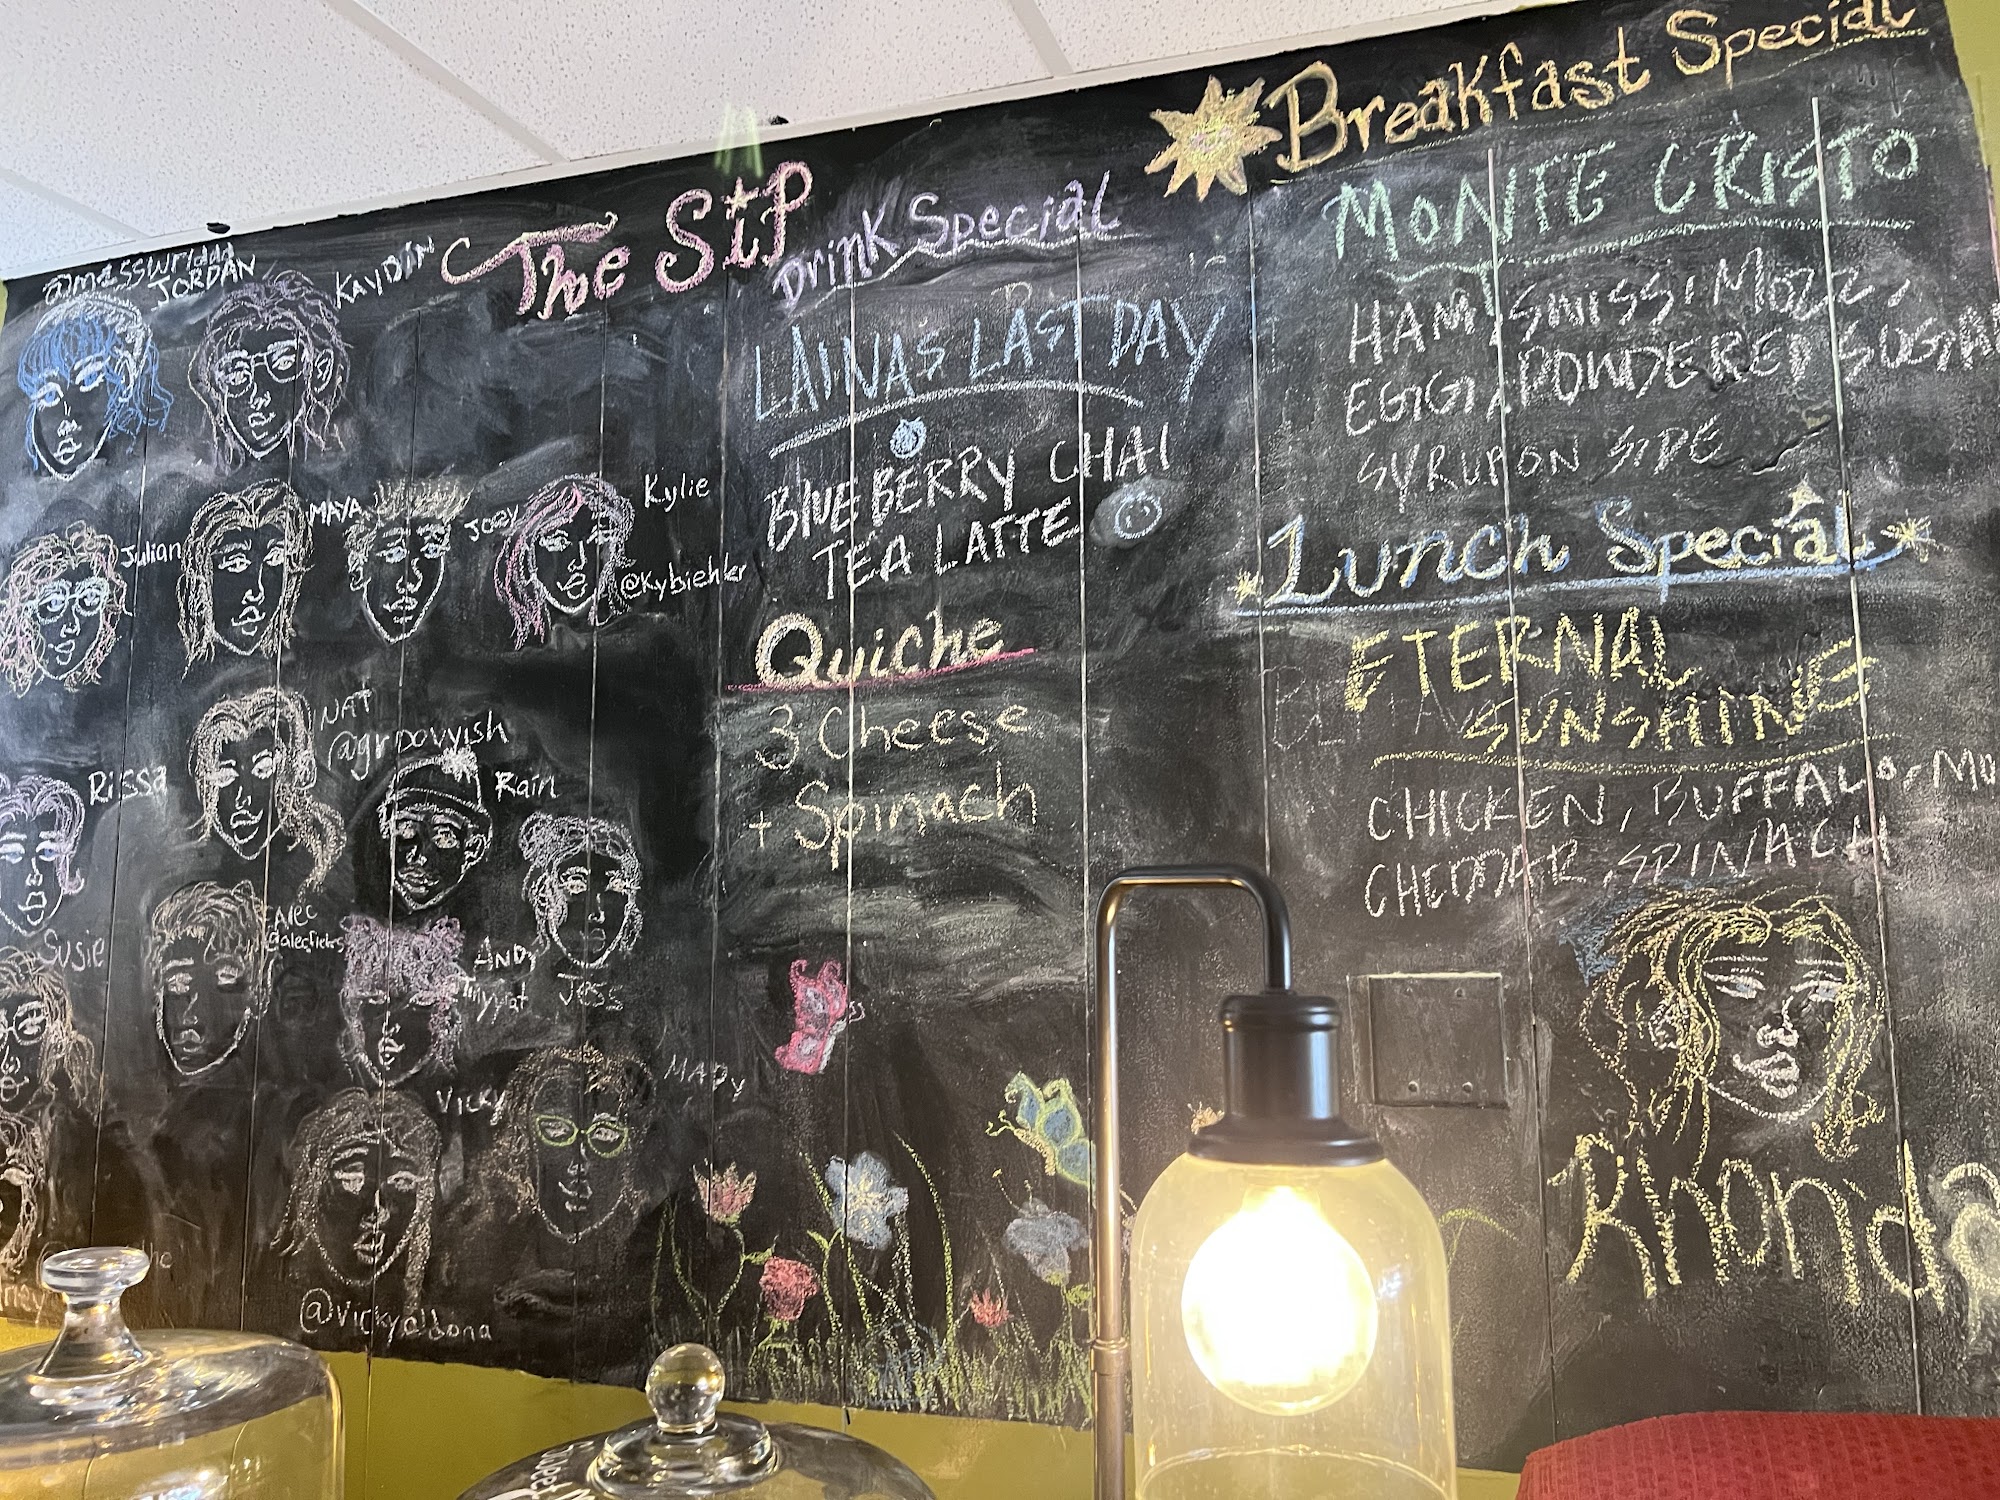 JORDAN
KAYDIN
Julian
MAYA
JOEY
Kylie
@kybiehler
NAT
@grpovyish
Rissa
Rain
Susie
Alec
ANDY
Jess
Vicky
MADY
@vickyaldona
The Sip
Drink Special
LAINAS LAST DAY
BlUEBERRY CHAI
TEA LATTE
Quiche
3 Cheese
+ Spinach
Breakfast Special
MONTE CRISTO
HAM, SWISS, MOZZ,
EGG, POWDERED SUGAR
SYRUP ON SIDE
Lunch Special
ETERNAL
SUNSHINE
CHICKEN, BUFFALO,
CHEDDAR, SPINACH
Rhonda